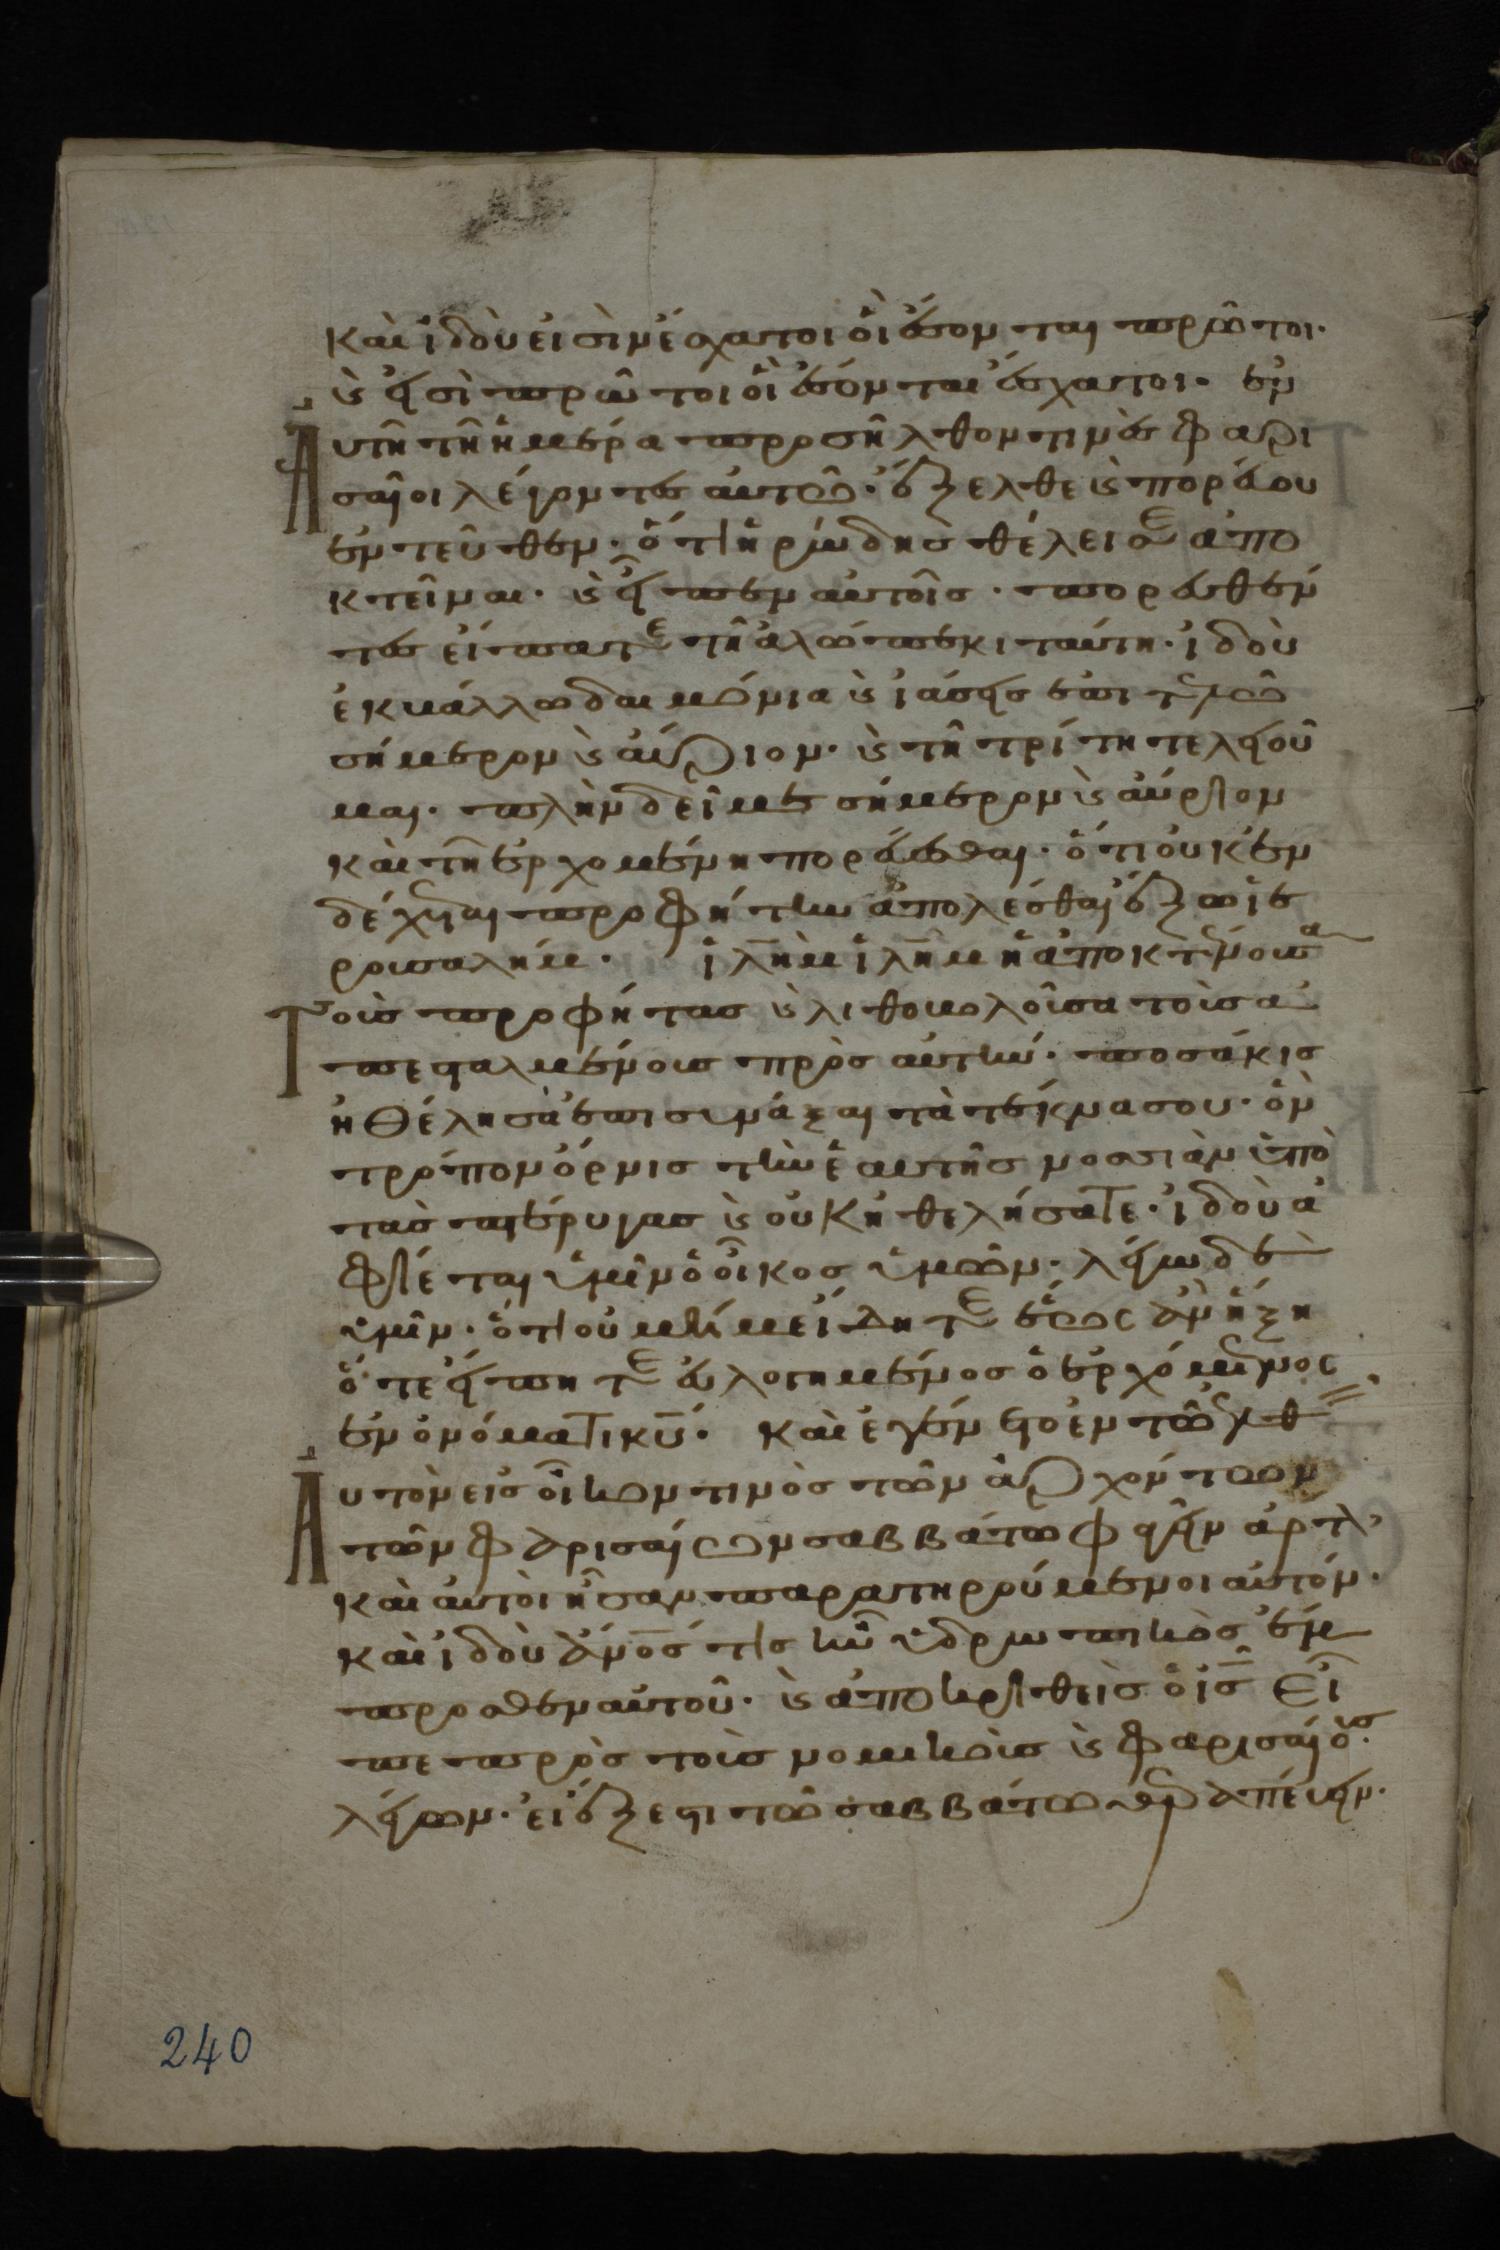 καὶ ἰδοὺ εἰσὶν ἔσχατοι οἳ ἔσονται πρῶτοι·
ϗ εἰσὶ πρῶτοι οἳ ἔσονται ἔσχατοι· ἐν
Αυτῆ τῆ ἡμέρα προσῆλθόν τινες φαρι
σαῖοι λέγοντες αὐτῶ· ἔξελθε ϗ πορεύου
ἐντεῦθεν· ὅτι ἡρώδης θέλει σε ἀπο
κτεῖναι· ϗ εἶπεν αὐτοῖς· πορευθέν
τες εἴπατε τῆ ἀλώπεκι ταύτη· ἰδοὺ
ἐκβάλλω δαιμόνια ϗ ἰάσεις ἐπιτελῶ
σήμερον ϗ αὔριον· ϗ τῆ τρίτη τελειοῦ
μαι· πλὴν δεῖ με σήμερον ϗ αὔριον
καὶ τῆ ἐρχομένη πορεύεσθαι· ὅτι οὐκ ἐν
δέχεται προφήτην ἀπολέσθαι ἔξω ἱε
ρουσαλήμ· ἱλη̅μ ἱλη̅μ ἡ ἀποκτένουσα
Τοὺς προφήτας ϗ λιθοβολοῦσα τοὺς ἀ
πεσταλμένους πρὸς αὐτήν· ποσάκις
ἠθέλησα ἐπισυνάξαι τὰ τέκνα σου· ὃν
τρόπον ὄρνις τὴν ἑαυτῆς νοσσιὰν ὑπὸ
τὰς πτέρυγας ϗ οὐκ ἠθελήσατε· ἰδοὺ ἀ
φίεται ὑμῖν ὁ οἶκος ὑμῶν· λέγω δὲ
ὑμῖν· ὅτι οὐ μή με εἴδητε ἕως ἂν ἥξη
ὅτε εἴπητε εὐλογημένος ὁ ἐρχόμενος
ἐν ὀνόματι κυ̅· καὶ ἐγένετο ἐν τῶ ἐλθ
Αυτὸν εἰς οἶκόν τινος τῶν ἀρχόντων
τῶν φαρισαίων σαββάτω φαγεῖν ἄρτ
καὶ αὐτοὶ ἦσαν παρατηρούμενοι αὐτόν·
καὶ ἰδοὺ ἄνο̅ς τις ἦν ὑδρωπικὸς ἔμ
προσθεν αὐτοῦ· ϗ ἀποκριθεὶς ὁ ισ̅ εἶ
πε πρὸς τοὺς νομικοὺς ϗ φαρισαίους·
λέγων· εἰ ἔξεστι τῶ σαββάτω θεραπεύειν·
240